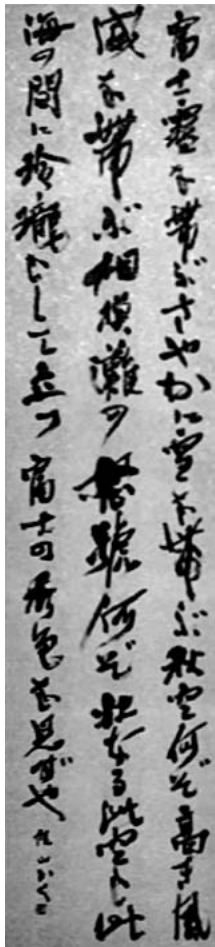 富士雲を帯ぶさやかに雪を帯ぶ秋空何ぞ高き風
威を帯ぶ相模灘の怒號何ぞ壮なる此空と此
海の間に玲瓏として立つ富士の秀色を見ずや